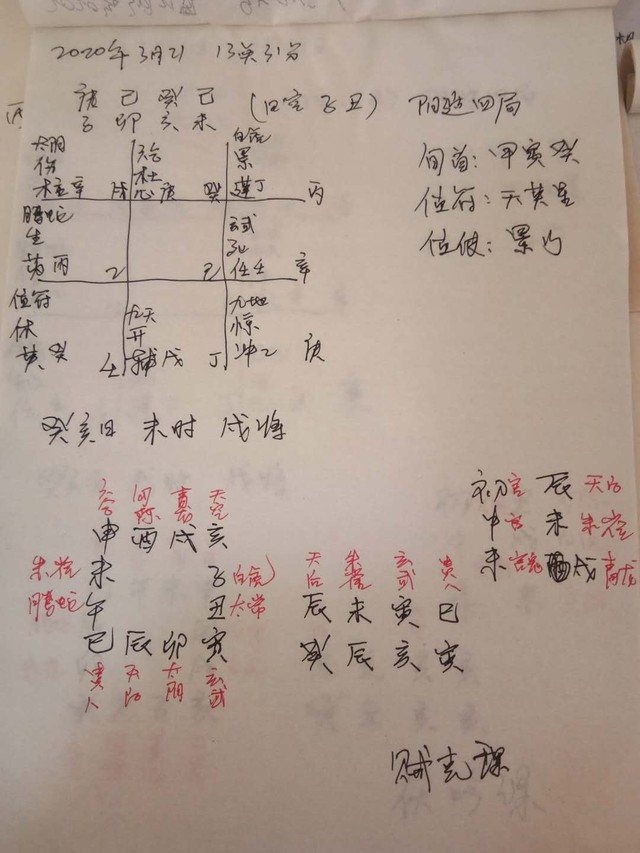 2020年3月21 13点31分
庚 己 癸 己 (日空 子丑) 阳遁四局
子 卯 亥 未
旬首：甲寅癸
值符：天英星
值使：景门
太阴 六合 白虎
伤 杜 景
柱辛 戊 心庚 癸 蓬丁 丙
腾蛇 玄武
生 死
芮丙 乙 己 任壬 辛
值符 九天 九地
休 开 惊
英癸 壬 辅戊 丁 冲乙 庚
癸亥日 未时 戌将
六合 勾陈 青龙 天空
申 酉 戌 亥
朱雀 未 子 白虎
腾蛇 午 丑 太常
巳 辰 卯 寅
贵人 天后 太阴 玄武
天后 朱雀 玄武 贵人
辰 未 寅 巳
癸 辰 亥 寅
初 官 辰 天后
中 官 未 朱雀
末 官 戌 青龙
贼克课